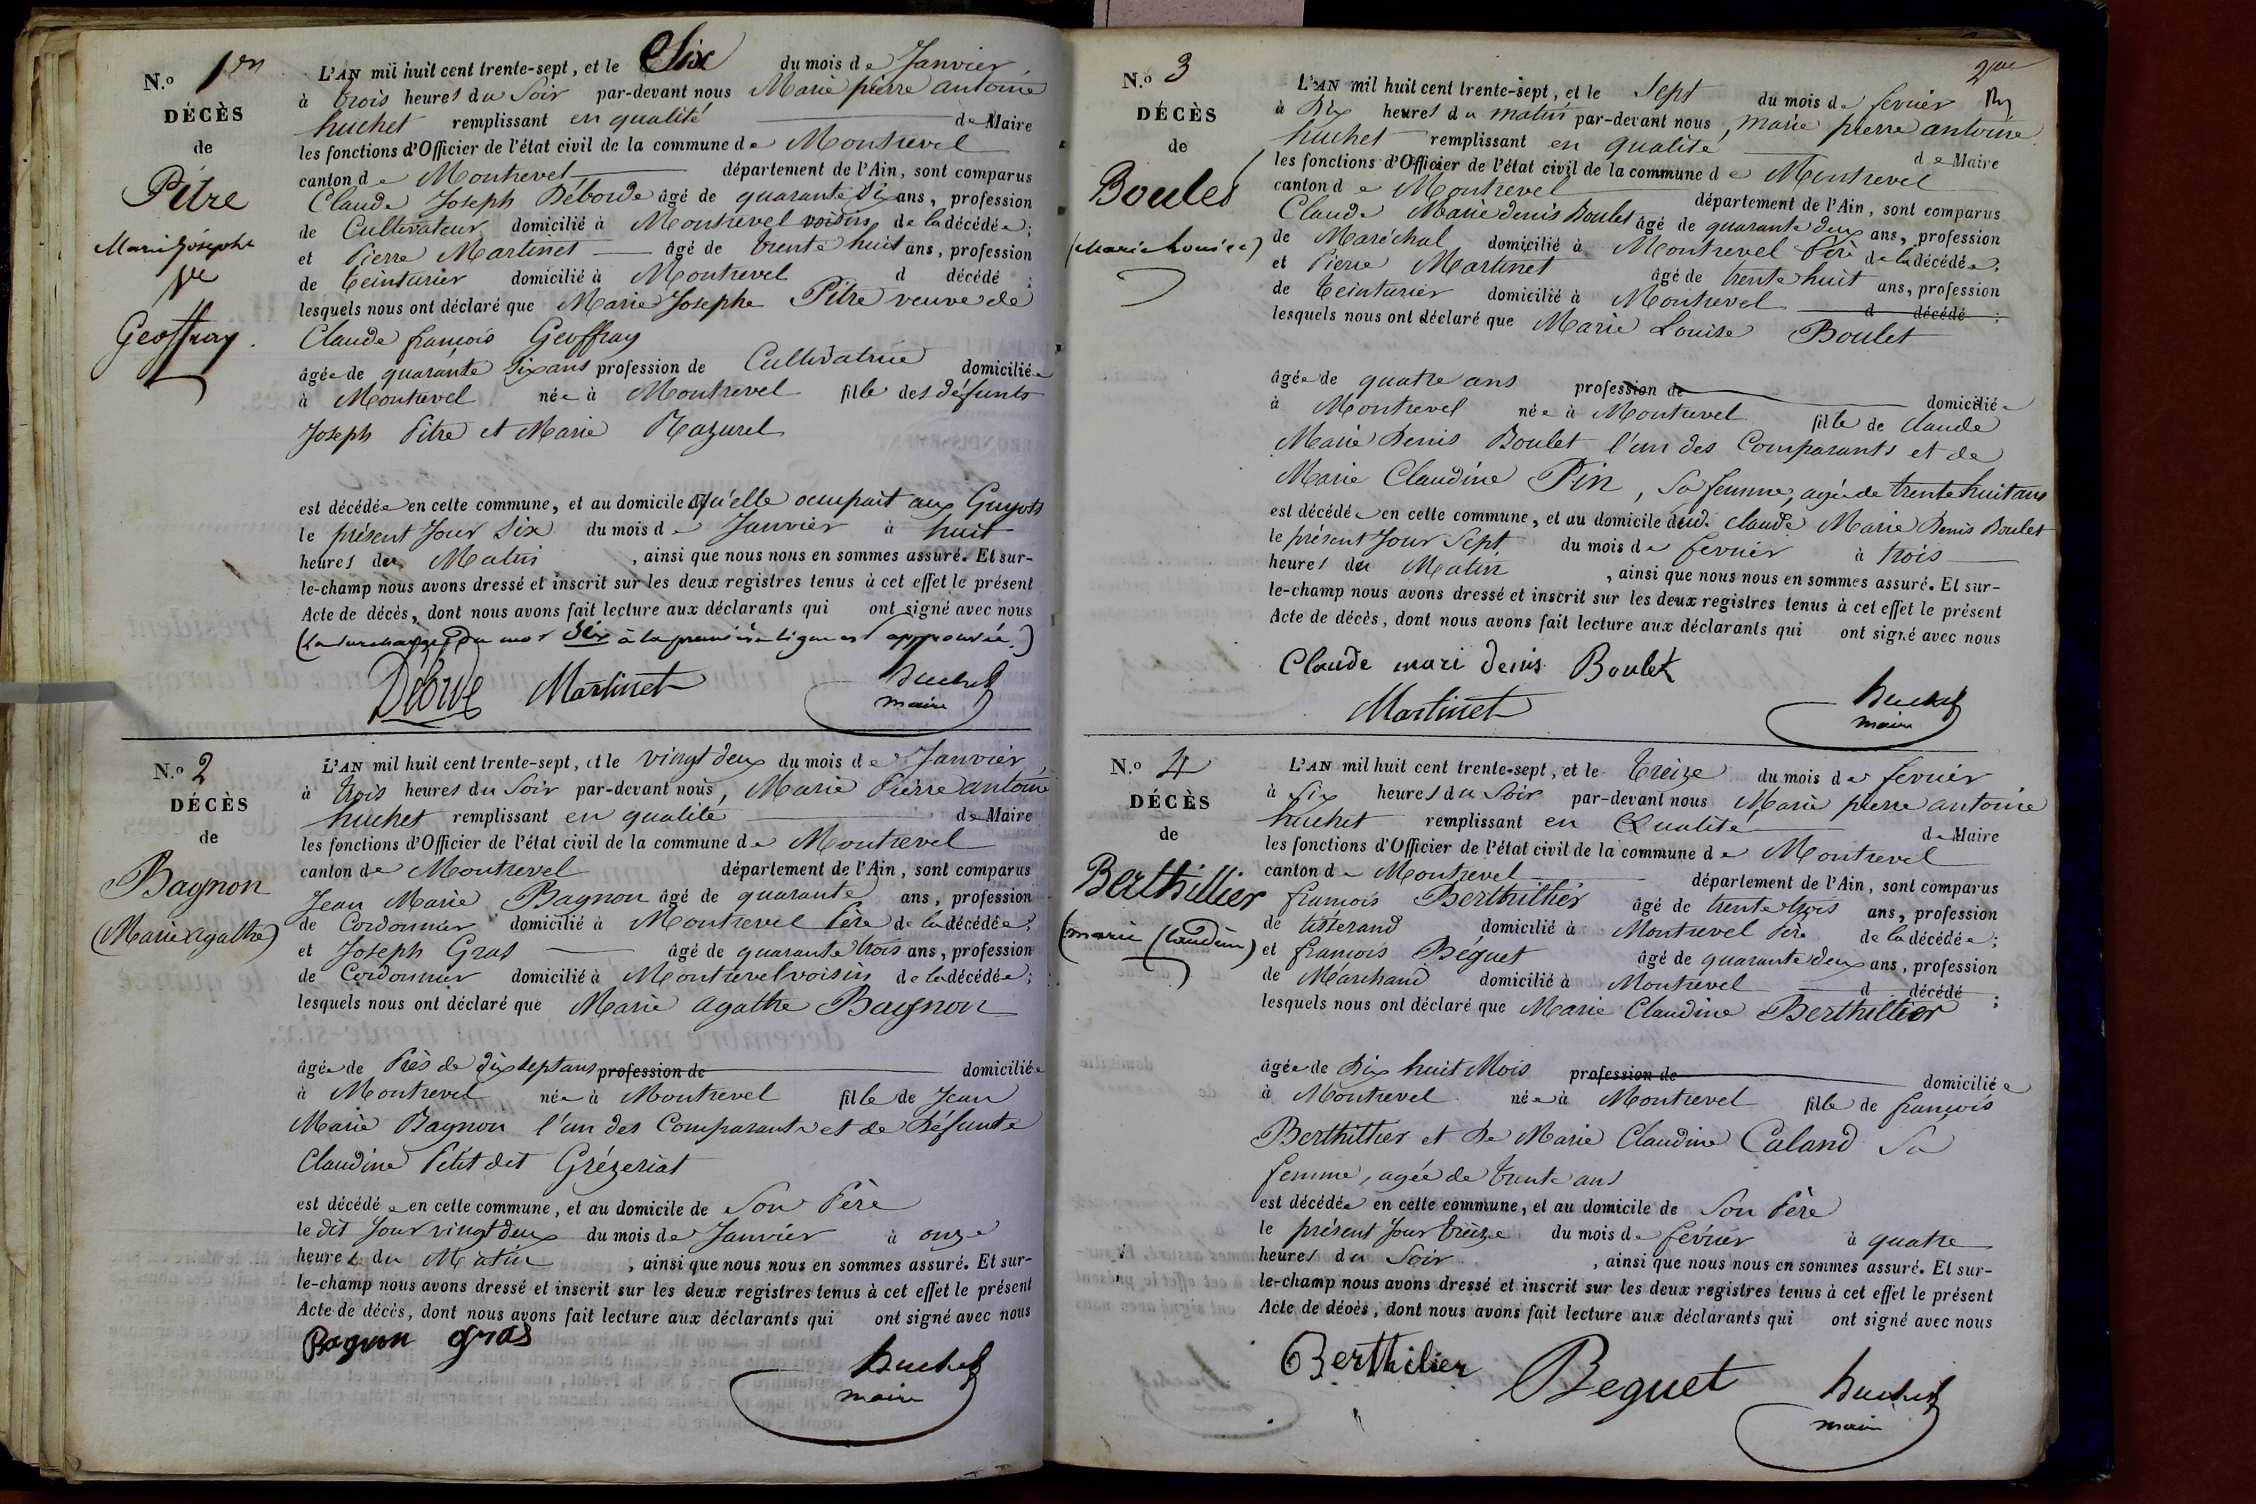 N.o 1er
DÉCÈS
de
Pitre
Marie Josephe
Ve
Geoffray.
L'AN mil huit cent trente-sept, et le Six du mois de Janvier
à trois heures du Soir par-devant nous Marie pierre antoine
huchet remplissant en qualité de Maire
les fonctions d'Officier de l'état civil de la commune de Montrevel
canton de Montrevel département de l'Ain, sont comparus
Claude Joseph Déborde âgé de quarante six ans, profession
de Cultivateur domicilié à Montrevel voisin de la décédée;
et Pierre Martinet âgé de trente huit ans, profession
de teinturier domicilié à Montrevel d décédé ;
lesquels nous ont déclaré que Marie Josephe Pitre veuve de
Claude françois Geoffray
âgée de quarante six ans profession de Cultivatrice domiciliée
à Montrevel née à Montrevel fille des défunts
Joseph Pitre et Marie Mazurel
est décédée en cette commune, et au domicile qu'elle occupait aux Guyots
le présent Jour Six du mois de Janvier à huit
heures du Matin , ainsi que nous nous en sommes assuré. Et sur-
le-champ nous avons dressé et inscrit sur les deux registres tenus à cet effet le présent
Acte de décès, dont nous avons fait lecture aux déclarants qui ont signé avec nous
(La surcharge du mot Six à la première ligne est approuvée.)
Martinet huchet
maire
N.o 2
DÉCÈS
de
Bagnon
(Marie agathe)
L'AN mil huit cent trente-sept, et le vingt deux du mois de Janvier
à trois heures du Soir par-devant nous, Marie Pierre antoine
huchet remplissant en qualité de Maire
les fonctions d'Officier de l'état civil de la commune de Montrevel
canton de Montrevel département de l'Ain, sont comparus
Jean Marie Bagnon âgé de quarante ans, profession
de Cordonnier domicilié à Montrevel Père de la décédée;
et Joseph Gras âgé de quarante trois ans, profession
de Cordonnier domicilié à Montrevel voisin de la décédée;
lesquels nous ont déclaré que Marie agathe Bagnon
âgée de Près de dix sept ans profession de domiciliée
à Montrevel née à Montrevel fille de Jean
Marie Bagnon l'un des Comparants et de Défunte
Claudine Petit dit Grézeriat
est décédée en cette commune, et au domicile de Son Père
le dit Jour vingt deux du mois de Janvier à onze
heures du Matin , ainsi que nous nous en sommes assuré. Et sur-
le-champ nous avons dressé et inscrit sur les deux registres tenus à cet effet le présent
Acte de décès, dont nous avons fait lecture aux déclarants qui ont signé avec nous
Bagnon gras
huchet
maire
2me
N.o 3
DÉCÈS
de
Boulet
(Marie Louise)
L'AN mil huit cent trente-sept, et le Sept du mois de fevrier
à Dix heures du matin par-devant nous, marie pierre antoine
huchet remplissant en qualité de Maire
les fonctions d'Officier de l'état civil de la commune de Montrevel
canton de Montrevel département de l'Ain, sont comparus
Claude Marie denis Boulet âgé de quarante deux ans, profession
de Maréchal domicilié à Montrevel Père de la décédée;
et Pierre Martinet âgé de trente huit ans, profession
de teinturier domicilié à Montrevel d décédé ;
lesquels nous ont déclaré que Marie Louise Boulet
âgée de quatre ans profession de domiciliée
à Montrevel née à Montrevel fille de Claude
Marie Denis Boulet l'un des Comparants et de
Marie Claudine Pin, Sa femme, agée de trente huit ans
est décédée en cette commune, et au domicile dud. Claude Marie Denis Boulet
le présent Jour Sept du mois de fevrier à trois
heures du Matin , ainsi que nous nous en sommes assuré. Et sur-
le-champ nous avons dressé et inscrit sur les deux registres tenus à cet effet le présent
Acte de décès, dont nous avons fait lecture aux déclarants qui ont signé avec nous
Claude mari denis Boulet
Martinet huchet
maire
N.o 4
DÉCÈS
de
Berthillier
(marie Claudine)
L'AN mil huit cent trente-sept, et le treize du mois de fevrier
à Six heures du Soir par-devant nous Marie pierre antoine
huchet remplissant en Qualité de Maire
les fonctions d'Officier de l'état civil de la commune de Montrevel
canton de Montrevel département de l'Ain, sont comparus
françois Berthillier âgé de trente trois ans, profession
de tisserand domicilié à Montrevel Père de la décédée;
et françois Béguet âgé de quarante deux ans, profession
de Marchand domicilié à Montrevel d décédé ;
lesquels nous ont déclaré que Marie Claudine Berthillier
âgée de Dix huit Mois profession de domiciliée
à Montrevel née à Montrevel fille de françois
Berthillier et De Marie Claudine Caland Sa
femme, agée de trente ans
est décédée en cette commune, et au domicile de Son Père
le présent Jour treize du mois de février à quatre
heures du Soir , ainsi que nous nous en sommes assuré. Et sur-
le-champ nous avons dressé et inscrit sur les deux registres tenus à cet effet le présent
Acte de décès, dont nous avons fait lecture aux déclarants qui ont signé avec nous
Berthilier Beguet huchet
maire